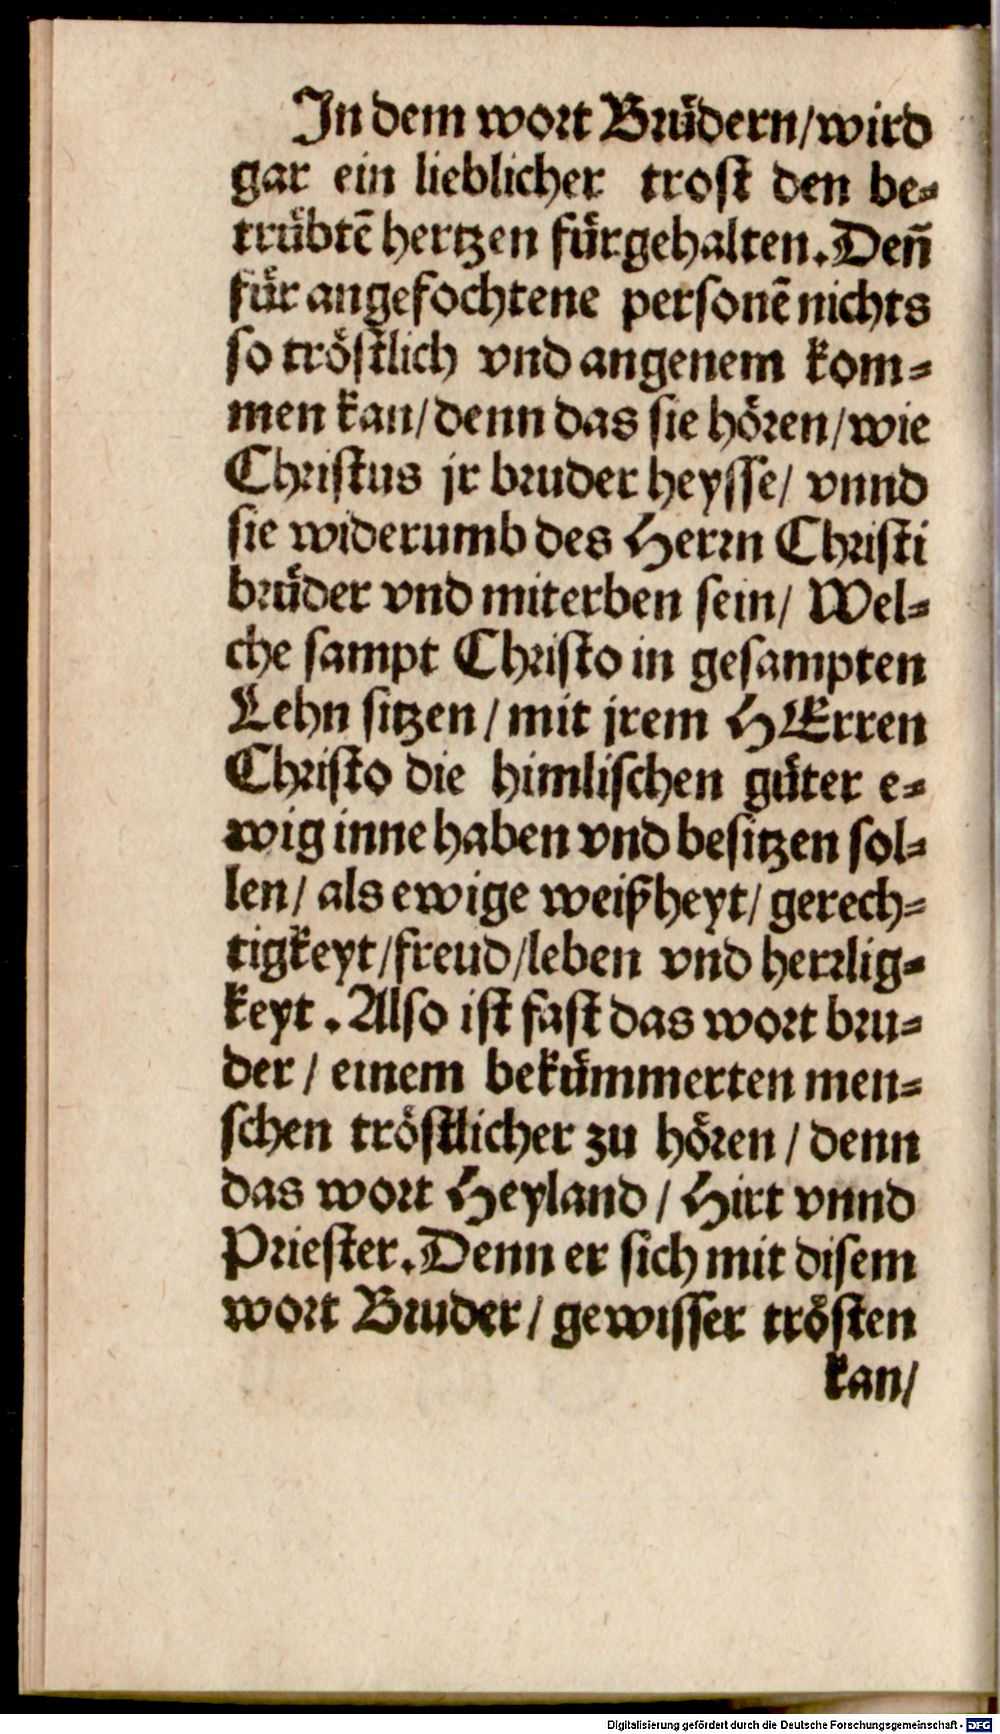 In dem wort Brüdern/wird
gar ein lieblicher trost den be-
trübtē hertzen fürgehalten. Deñ
für angefochtene personē nichts
so tröstlich vnd angenem kom-
men kan/denn das sie hören/wie
Christus jr bruder heysse/ vnnd
sie widerumb des Herrn Christi
brüder vnd miterben sein/ Wel-
che sampt Christo in gesampten
Lehn sitzen/mit jrem HErren
Christo die himlischen güter e-
wig inne haben vnd besitzen sol-
len/ als ewige weißheyt/ gerech-
tigkeyt/freud/leben vnd herrlig-
keyt. Also ist fast das wort bru-
der/ einem bekümmerten men-
schen tröstlicher zu hören/ denn
das wort Heyland/ Hirt vnnd
Priester. Denn er sich mit disem
wort Bruder/ gewisser trösten
kan/
Digitalisierung gefördert durch die Deutsche Forschungsgemeinschaft - DFG